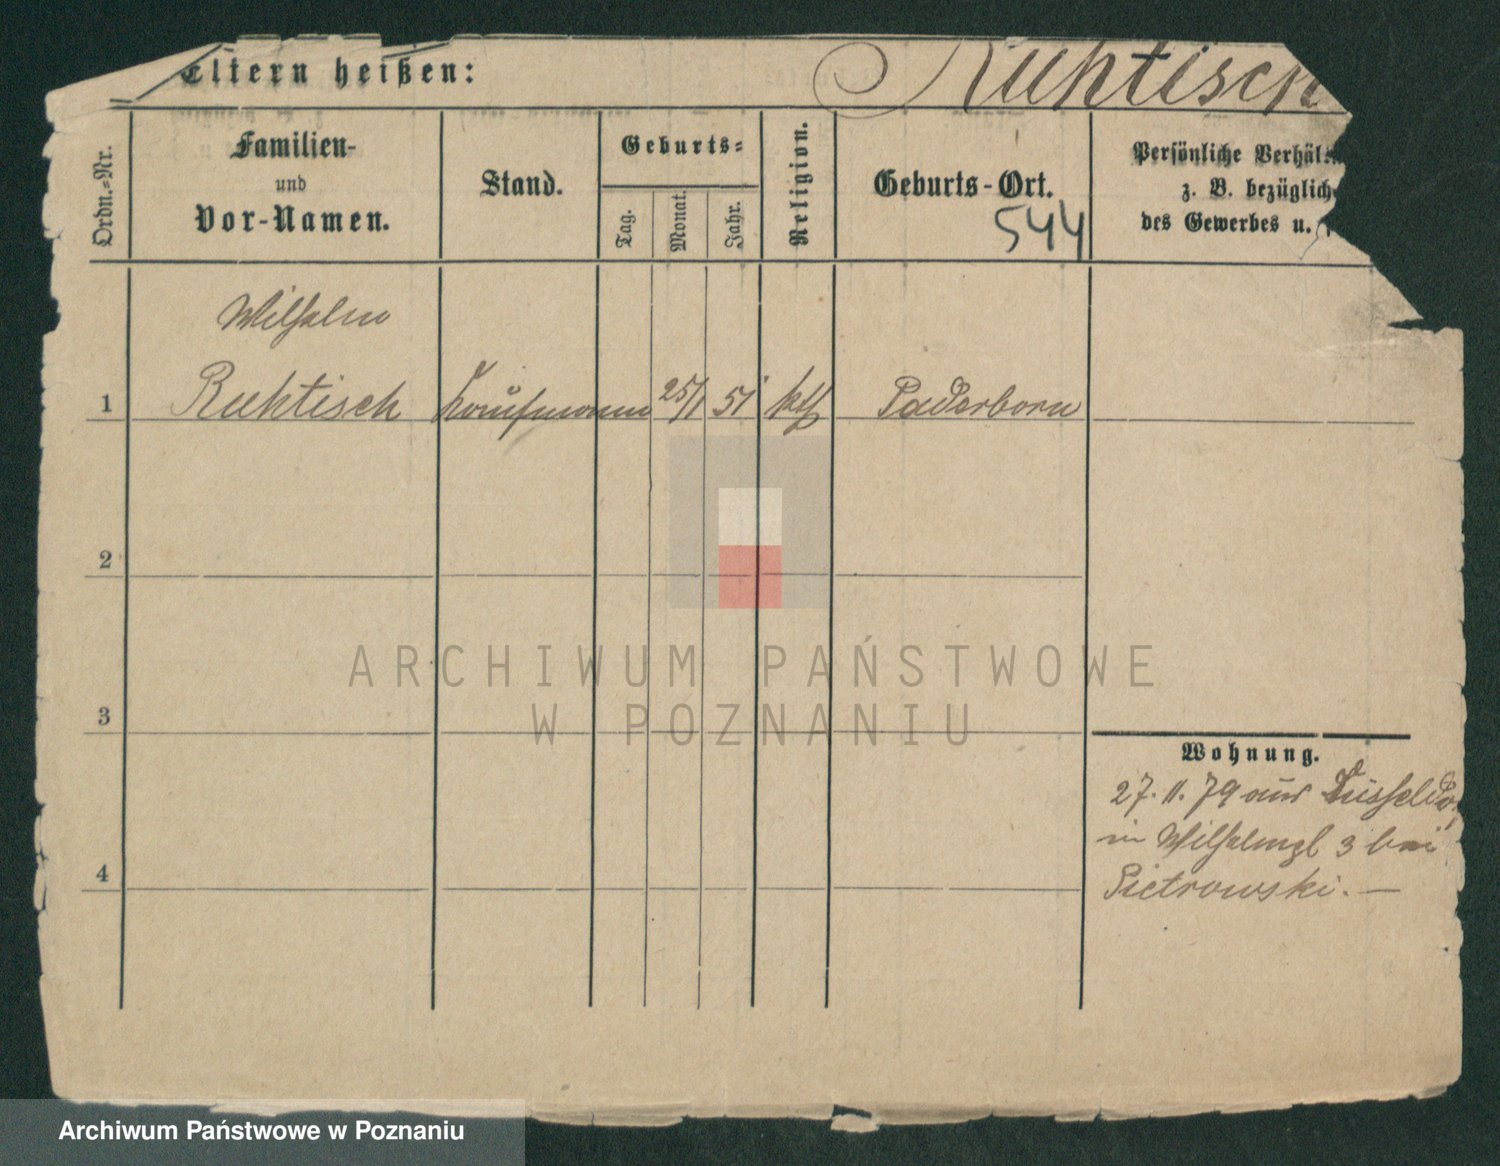 Eltern heißen:
Ruhtisch
Ordn.=Nr.
Familien-
und
Vor-Namen.
Stand.
Geburts=
Tag.
Monat.
Jahr.
Religion.
Geburts-Ort.
544
Persönliche Verhäl
z. B. bezüglich
des Gewerbes u.
Wilhelm
1 Ruhtisch Kaufmann 25/1 51 kth Paderborn
2
3
4
Wohnung.
27. 11. 79 aus Düsseldo
in Wilhelmpl 3 bei
Pietrowski. —
ARCHIWUM PAŃSTWOWE
W POZNANIU
Archiwum Państwowe w Poznaniu